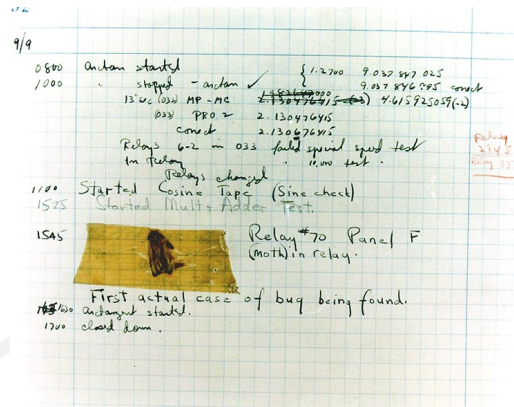 9/9
0800 Antan started
1000 " stopped - antan ✓ { 1.2700 9.037 847 025
9.037 846 995 correct
13"uc (032) MP-MC 2.130476415 (-3) 4.615925059(-2)
(033) PRO 2 2.130476415
correct 2.130676415
Relays 6-2 in 033 failed special speed test
in relay " 10,000 test.
Relays changed
Relay
3370
1100 Started Cosine Tape (Sine check)
1525 Started Mult+Adder Test.
1545 Relay #70 Panel F
(moth) in relay.
First actual case of bug being found.
1630 antangent started.
1700 closed down.